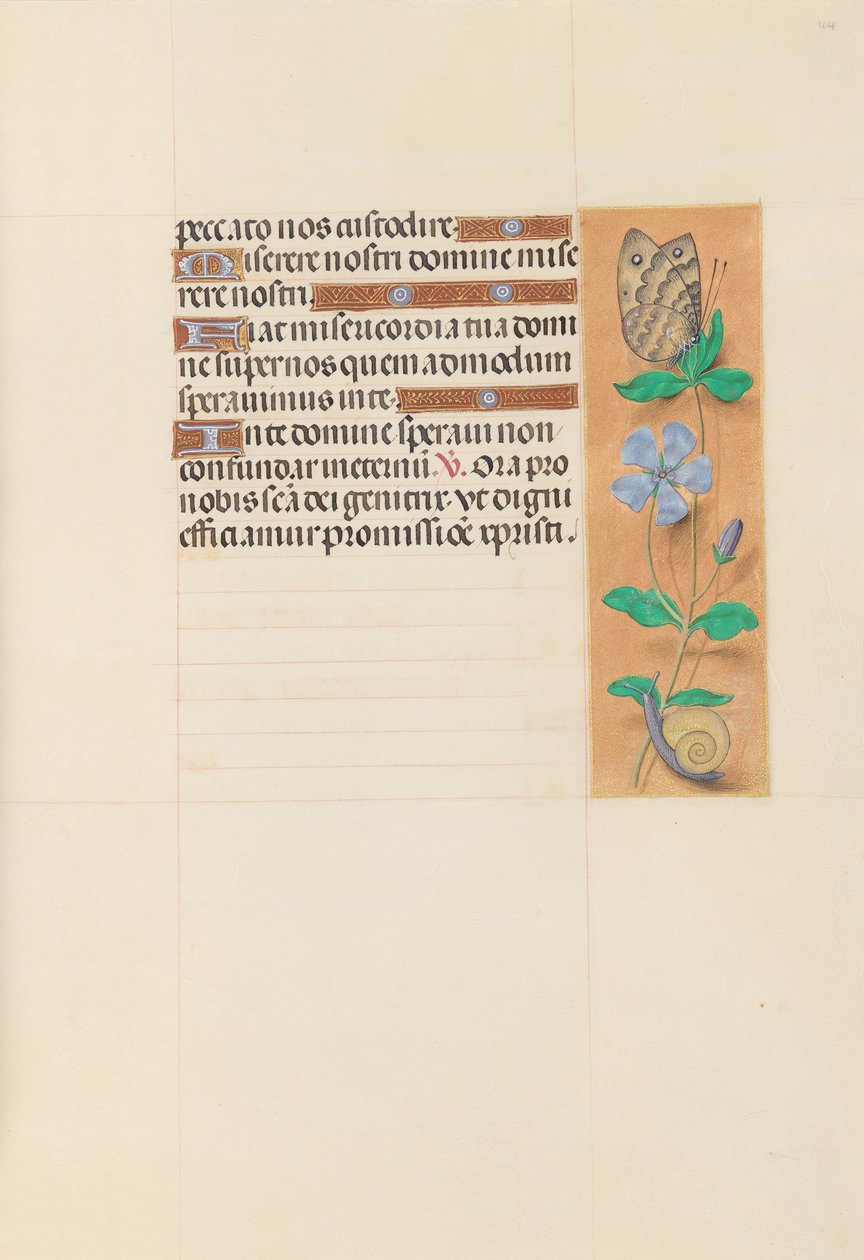 peccato nos custodire.
Miserere nostri domine mise
rere nostri.
Fiat misericordia tua domi
ne super nos quemadmodum
speravimus in te.
In te domine speravi non
confundar in eternū. V̄. Ora pro
nobis scā dei genitrix. vt digni
efficiamur promissiōe xpristi.